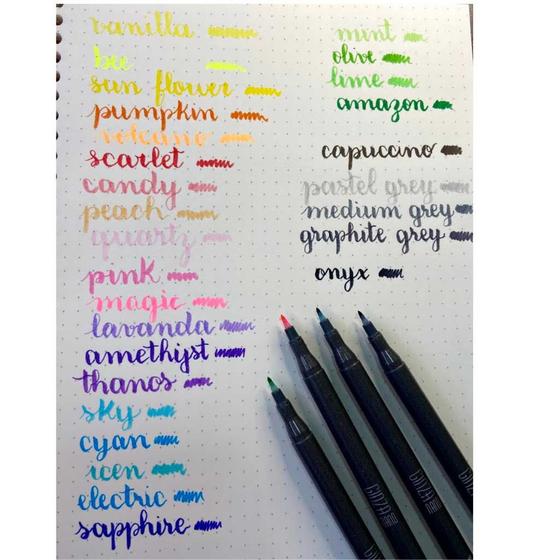 vanilla
bee
sun flower
pumpkin
volcano
scarlet
candy
peach
quartz
pink
magic
lavanda
amethyst
thanos
sky
cyan
icen
electric
sapphire
mint
olive
lime
amazon
capuccino
pastel grey
medium grey
graphite grey
onyx
GINZA
GINZA
GINZA
GINZA